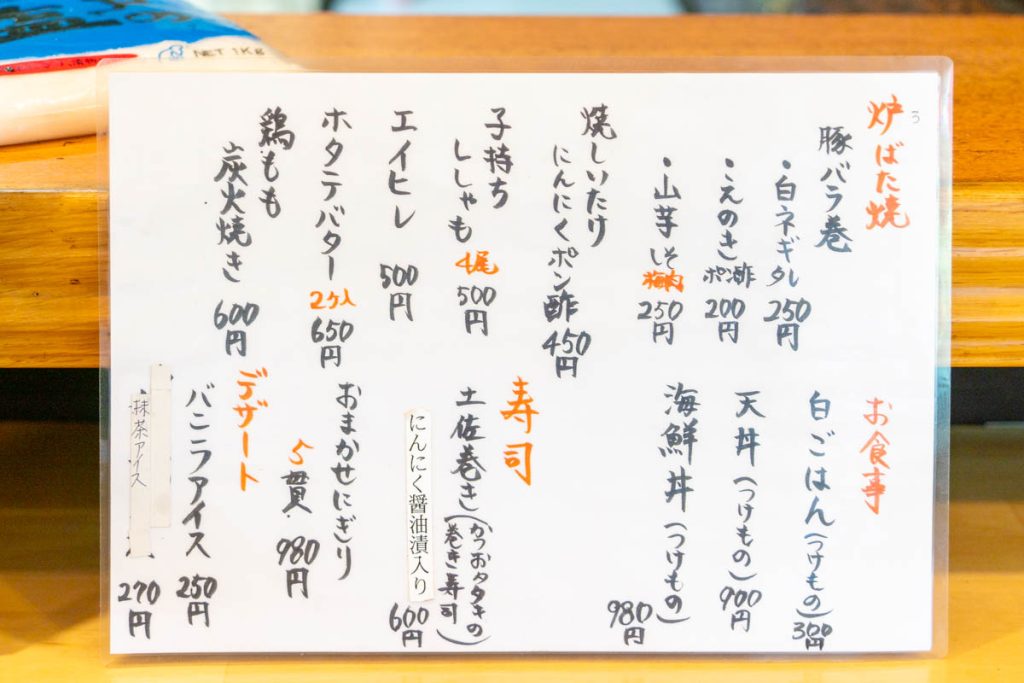 NET 1Kg
3
炉ばた焼
豚バラ巻
・白ネギタレ 250円
・えのきポン酢 200円
・山芋しそ梅肉 250円
焼しいたけ
にんにくポン酢 450円
子持ち
ししゃも 4尾 500円
エイヒレ 500円
ホタテバター 2ケ入 650円
鶏もも
炭火焼き 600円
お食事
白ごはん(つけもの) 300円
天丼(つけもの) 900円
海鮮丼(つけもの) 980円
寿司
土佐巻き(かつおタタキの巻き寿司)
にんにく醤油漬入り
600円
おまかせにぎり
5貫 980円
デザート
バニラアイス 250円
抹茶アイス 270円